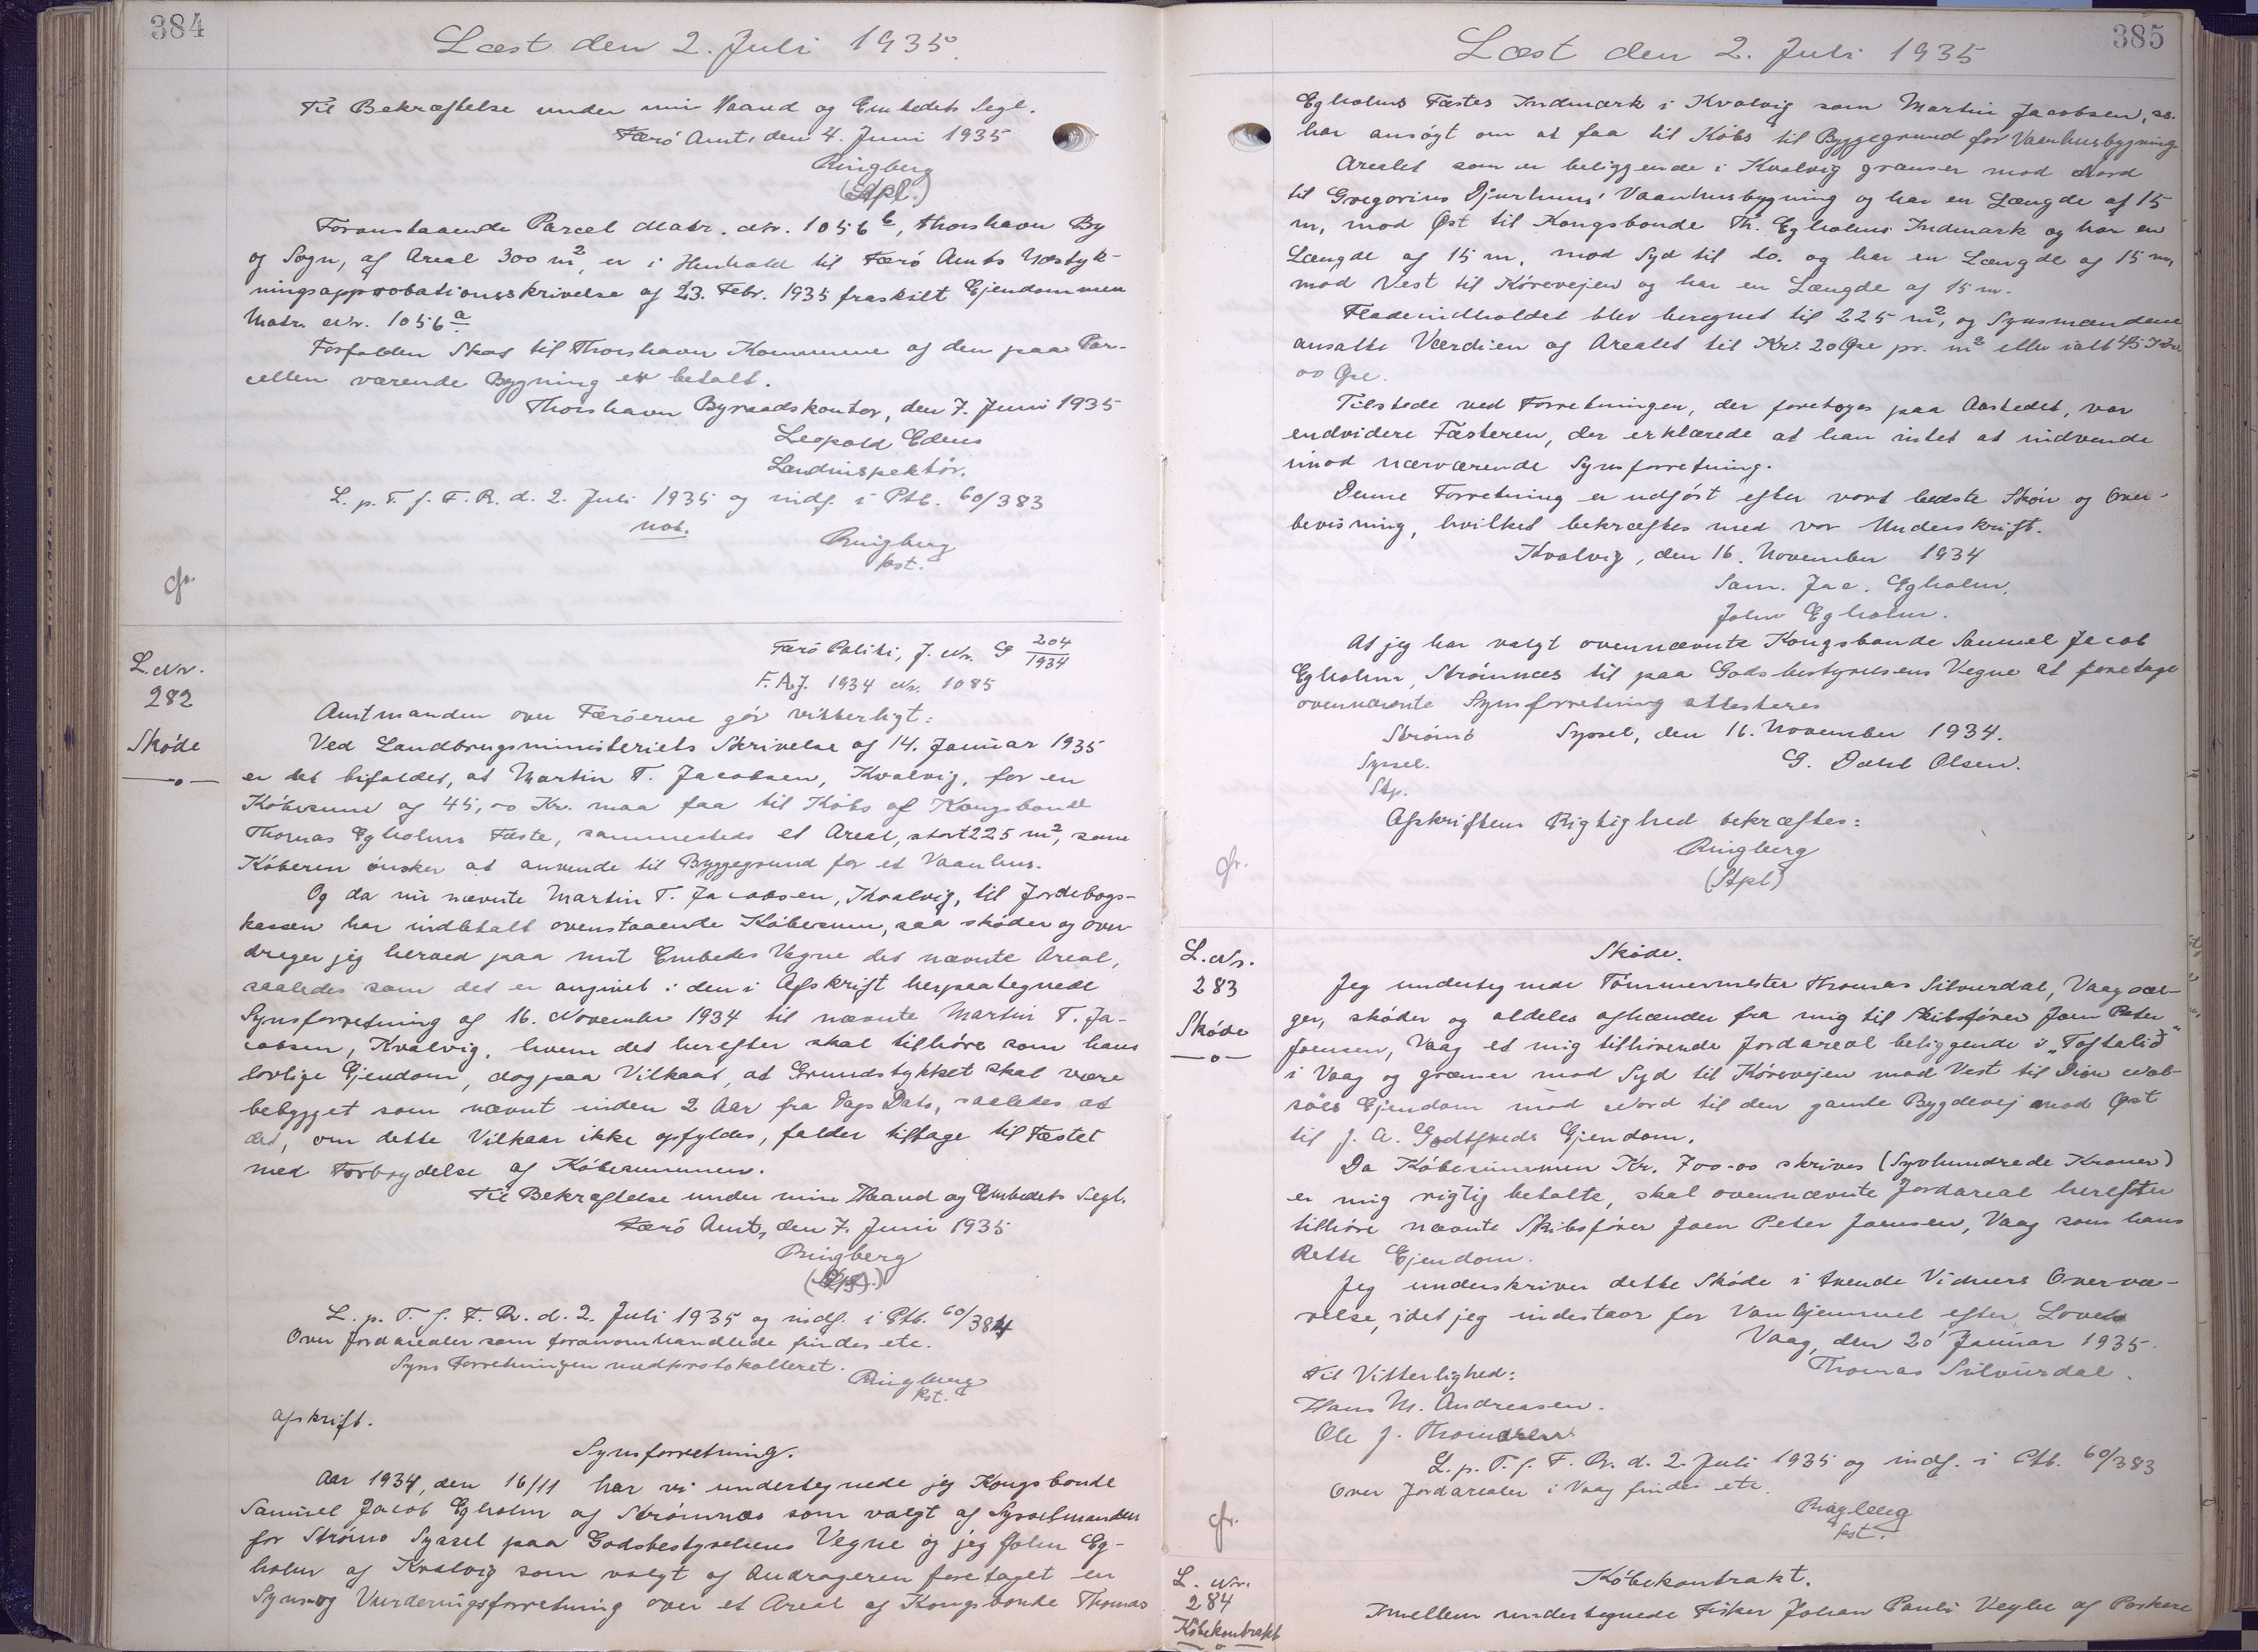 384
Læst den 2. Juli 1935.
Til Bekræftelse under min Haand og Embedets Segl.
Færö Amt, den 4. Juni 1935
Ringberg
(Stpl.)
Foranstaaende Parcel Matr. Nr. 1056 b, Thorshavn By
og Sogn, af Areal 300 m², er i Henhold til Færö Amts Udstyk-
ningsapprobationsskrivelse af 23. Febr. 1935 fraskilt Ejendommen
Matr. Nr. 1056 a
Forfalden Skat til Thorshavn Kommune af den paa Par-
cellen værende Bygning er betalt.
Thorshavn Byraadskontor, den 7. Juni 1935
Leopold Edens
Landinspektör.
L. p. T. f. F. R. d. 2. Juli 1935 og indf. i Ptb. 60/383
not.
Ringberg
kst.
cfr.
L. Nr.
282
Sköde
Færö Politi, J. Nr. G 204/1934
F. A. J. 1934 Nr. 1085
Amtmanden over Færöerne gör vitterligt:
Ved Landbrugsministeriets Skrivelse af 14. Januar 1935
er det bifaldet, at Martin T. Jacobsen, Kvalvig, for en
Köbesum af 45,00 Kr. maa faa til Köbs af Kongsbonde
Thomas Egholms Fæste, sammesteds et Areal, stort 225 m², som
Köberen önsker at anvende til Byggegrund for et Vaanhus.
Og da nu nævnte Martin T. Jacobsen, Kvalvig, til Jordebogs-
kassen har indbetalt ovenstaaende Köbesum, saa sköder og over-
drager jeg herved paa mit Embedes Vegne det nævnte Areal,
saaledes som det er angivet i den i Afskrift herpaategnede
Synsforretning af 16. November 1934 til nævnte Martin T. Ja-
cobsen, Kvalvig, hvem det herefter skal tilhöre som hans
lovlige Ejendom, dog paa Vilkaar, at Grundstykket skal være
bebygget som nævnt inden 2 Aar fra Dags Dato, saaledes at
det, om dette Vilkaar ikke opfyldes, falder tilbage til Fæstet
med Fortrydelse af Köbesummen.
Til Bekræftelse under min Haand og Embedets Segl.
Færö Amt, den 7. Juni 1935
Ringberg
(Stpl.)
L. p. T. f. F. R. d. 2. Juli 1935 og indf. i Ptb. 60/384
Over Jordarealer som foranomhandlede findes etc.
Syns Forretningen medprotokolleret.
Ringberg
kst.
Afskrift.
Synsforretning.
Aar 1934, den 16/11 har vi undertegnede jeg Kongsbonde
Samuel Jacob Egholm af Strömnæs som valgt af Sysselmanden
for Strömö Syssel paa Godsbestyrelsens Vegne og jeg John Eg-
holm af Kvalvig som valgt af Andrageren foretaget en
Syns og Vurderingsforretning over et Areal af Kongsbonde Thomas
385
Læst den 2. Juli 1935
Egholms Fæstes Indmark i Kvalvig som Martin Jacobsen, ss.
har ansögt om at faa til Köbs til Byggegrund for Vaanhusbygning
Arealet som er beliggende i Kvalvig grænser mod Nord
til Gregorius Djurhuus' Vaanhusbygning og har en Længde af 15
m, mod Øst til Kongsbonde Th. Egholms Indmark og har en
Længde af 15 m, mod Syd til do. og har en Længde af 15 m,
mod Vest til Körevejen og har en Længde af 15 m.
Fladeindholdet blev beregnet til 225 m², og Synsmændene
ansatte Værdien af Arealet til Kr. 20 Øre pr. m² eller ialt 45 Kr.
00 Øre.
Tilstede ved Forretningen, der foretoges paa Aastedet, var
endvidere Fæsteren, der erklærede at han intet at indvende
imod nærværende Synsforretning.
Denne Forretning er udfört efter vort bedste Skön og Over-
bevisning, hvilket bekræftes med vor Underskrift.
Kvalvig, den 16. November 1934
Sam. Jac. Egholm.
John Egholm.
At jeg har valgt ovennævnte Kongsbonde Samuel Jacob
Egholm, Strömnæs til paa Godsbestyrelsens Vegne at foretage
ovennævnte Synsforretning attesteres
Strömö Syssel, den 16. November 1934.
Syssel.
G. Dahl Olsen.
Stp.
Afskriftens Rigtighed bekræftes:
Ringberg
(Stpl)
cfr.
L. Nr.
283
Sköde
Sköde.
Jeg undertegnede Tömmermester Thomas Silvurdal, Vaag sæl-
ger, sköder og aldeles afhænder fra mig til Skibsförer Joen Peter
Joensen, Vaag et mig tilhörende Jordareal beliggende i "Toftalid"
i Vaag og grænser mod Syd til Körevejen mod Vest til
Ejendom mod Nord til den gamle Bygdevej mod Øst
til J. A. Godtfreds Ejendom.
Da Köbesummen Kr. 700-00 skrives (Syvhundrede Kroner)
er mig rigtig betalte, skal ovennævnte Jordareal herefter
tilhöre nævnte Skibsförer Joen Peter Joensen, Vaag som hans
Rette Ejendom.
Jeg underskriver dette Sköde i tvende Vidners Overvæ-
relse, idet jeg indestaar for Vanhjemmel efter Loven
Vaag, den 20' Januar 1935.
Thomas Silvurdal.
Til Vitterlighed:
Hans M. Andreasen.
Ole J. Thomasen
L. p. T. f. F. R. d. 2. Juli 1935 og indf. i Ptb. 60/383
Over Jordarealer i Vaag findes etc.
Ringberg
kst.
cfr.
L. Nr.
284
Köbekontrakt
Köbekontrakt.
Imellem undertegnede Fisker Johan Pauli Veyhe af Porkere